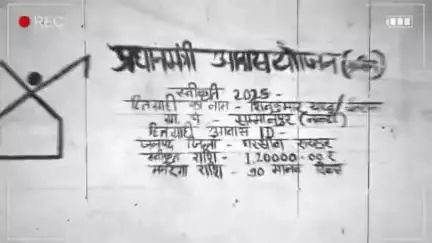 REC
प्रधानमंत्री आवास योजना
स्वीकृति 2025 -
हितग्राही का नाम - शिवकुमार
ग्रा पं -
हितग्राही आवास ID -
जनपद जिला -
स्वीकृत राशि - 1,20000.00 र
मनरेगा राशि - 90 मानव दिवस